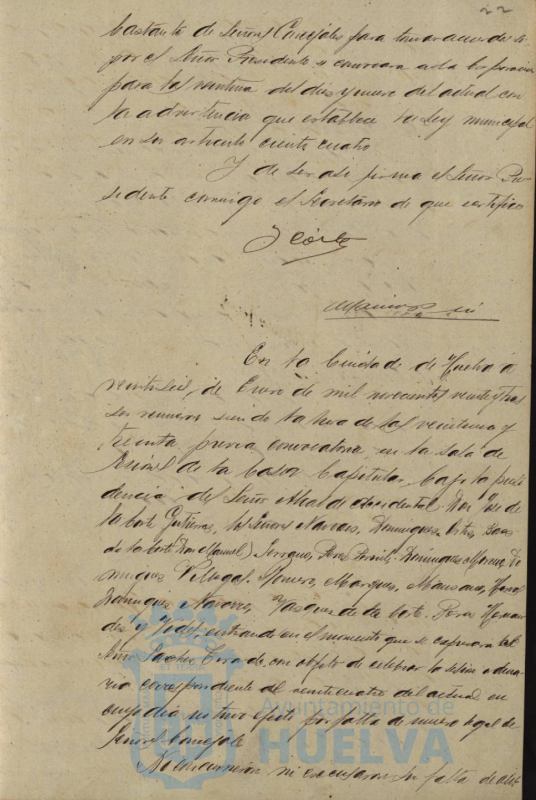 22
bastante de Señores Concejales para tomar acuerdos
por el Señor Presidente se convocara a la Corporación
para las veintiuna del dia y nueve del actual con
la advertencia que establece la Ley municipal
en su articulo ciento cuatro
Y de ser asi firma el Señor Pre-
sidente conmigo el Secretario de que certifico
En la Ciudad de Huelva a
veintiseis de Enero de mil novecientos veinte y tres
se reunieron siendo la hora de las veintiuna y
treinta previa convocatoria en la sala de
de la Casa Capitular, bajo la presi
dencia del Señor Alcalde accidental Don Jose de
la Corte Gutierrez, los Señores Narvaez, Dominguez Ortiz,
de la Corte (Don Manuel) Serrano, Perez Dominguez Moreno, Do
minguez Romero, Marquez, Manzano,
Dominguez Navarro, Vazquez de la Corte, Perez Hernan
dez y entrando en el momento que se expresara el
Señor con objeto de celebrar la sesion ordina
ria correspondiente al veinticuatro del actual en
cuyo dia no tuvo efecto por falta de numero legal de
Señores Concejales
No concurrieron ni excusaron su falta de
Ayuntamiento de
HUELVA